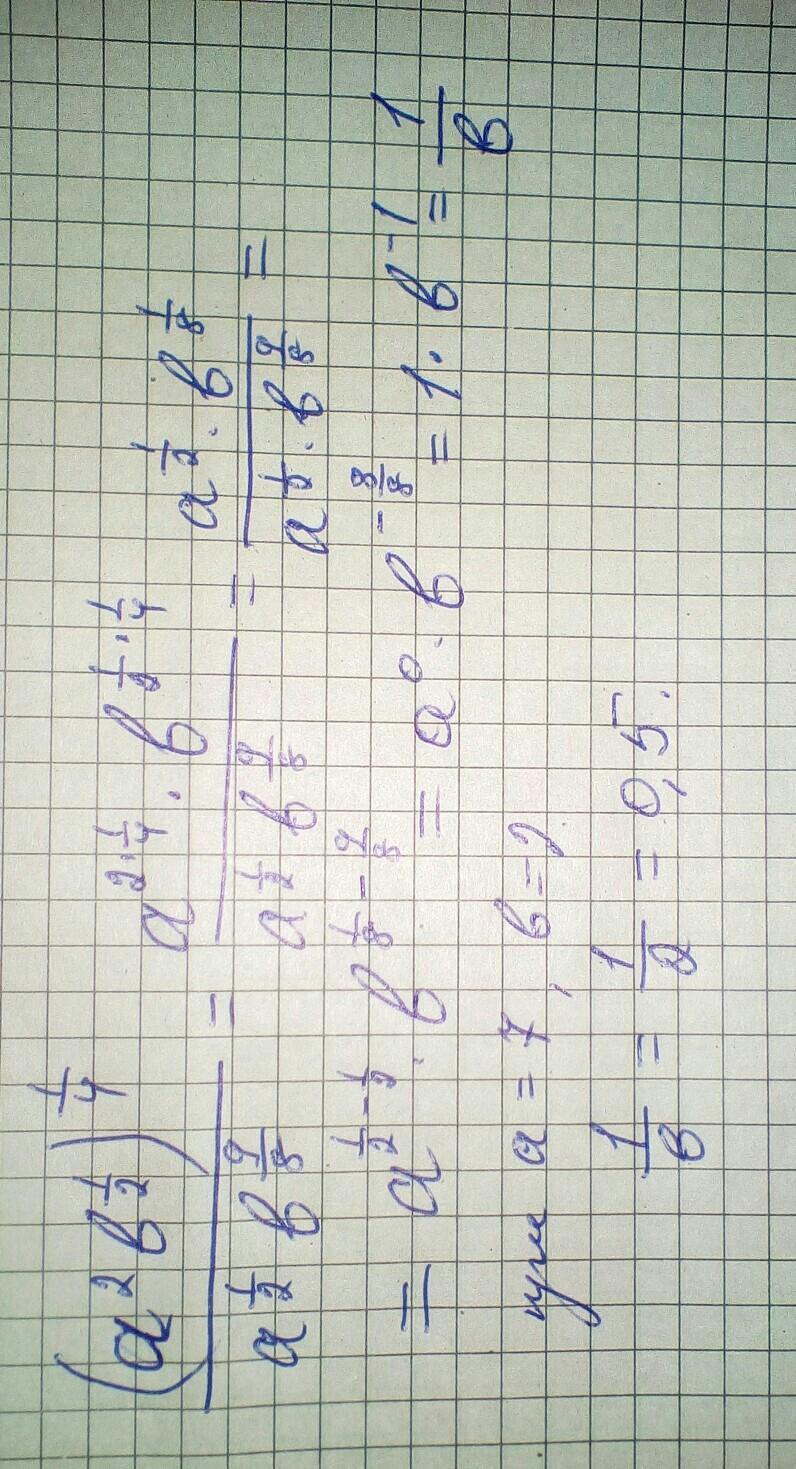 (a² b^(1/2))^(1/4) / (a^(1/2) b^(9/8)) = a^(2·1/4) · b^(1/2·1/4) / (a^(1/2) b^(9/8)) = a^(1/2) · b^(1/8) / (a^(1/2) · b^(9/8)) =
= a^(1/2-1/2) · b^(1/8-9/8) = a⁰ · b^(-8/8) = 1 · b⁻¹ = 1/b
при a = 7, b = 2
1/b = 1/2 = 0,5.